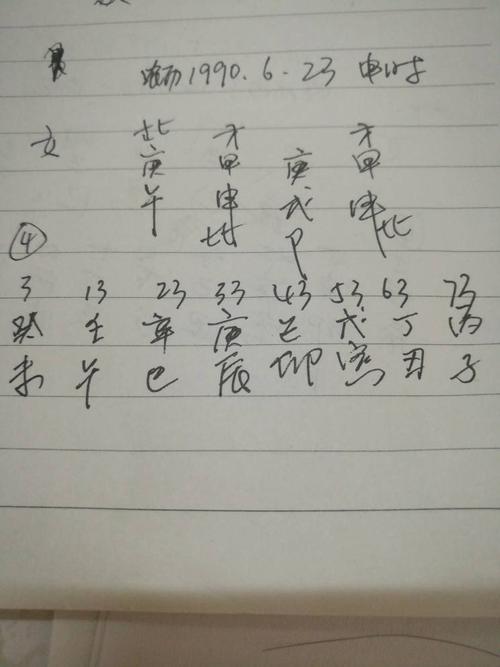 阴历1990.6.23 申时
比 才 才
女 庚 甲 庚 甲
午 申 戌 申
比 卩 比
④
3 13 23 33 43 53 63 73
癸 壬 辛 庚 己 戊 丁 丙
未 午 巳 辰 卯 寅 丑 子